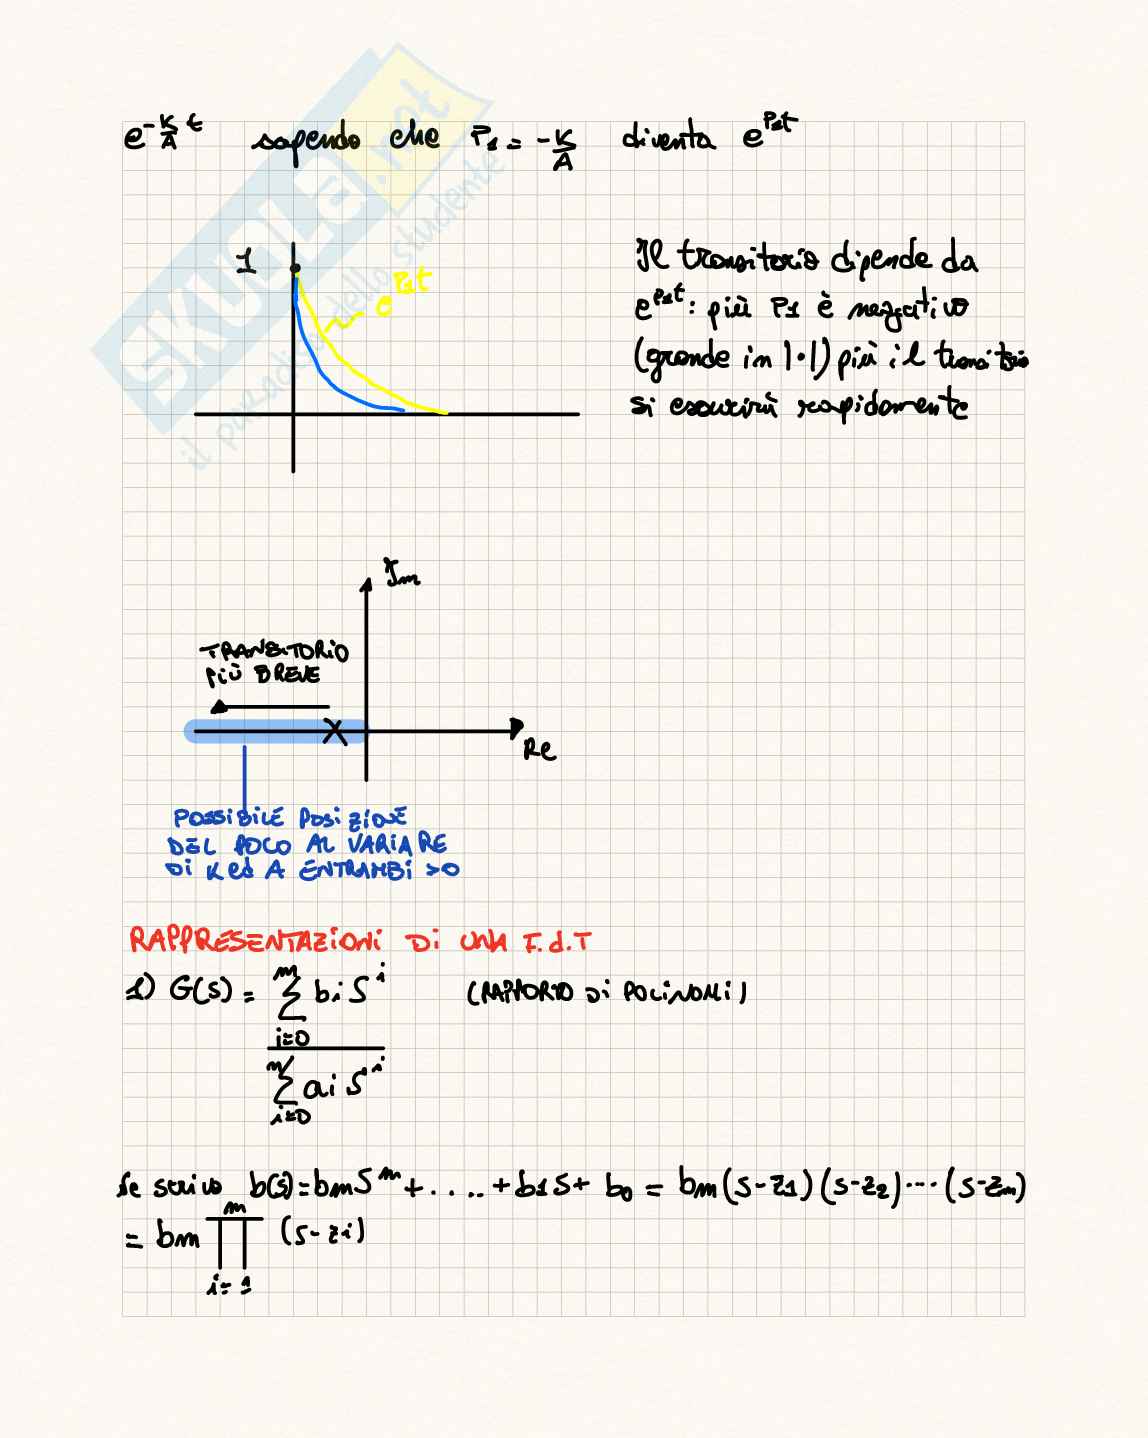 e^{-K/A t} sapendo che P1 = -K/A diventa e^{P1t}
1
e^{P1t}
Il transitorio dipende da
e^{P1t}: più P1 è negativo
(grande in |·|) più il transitorio
si esaurirà rapidamente
Im
TRANSITORIO
PIÙ BREVE
Re
POSSIBILE POSIZIONE
DEL POLO AL VARIARE
DI K ed A ENTRAMBI >0
RAPPRESENTAZIONI DI UNA F.d.T
1) G(s) = \frac{\sum_{i=0}^{m} bi S^i}{\sum_{i=0}^{n} ai S^i} (RAPPORTO DI POLINOMI)
Se scrivo b(s) = bm S^m + ..... + b1 S + b0 = bm (s-z1) (s-z2) ... (s-zm)
= bm \prod_{i=1}^{m} (s-zi)
SKUOLA.net
il paradiso dello studente